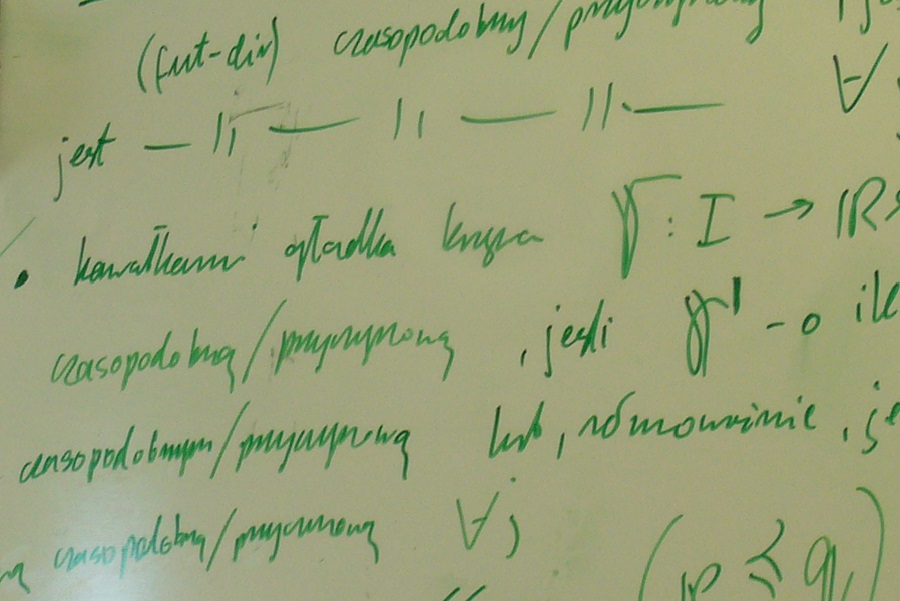 (fut-dir) czasopodobny/przyczynowy
jest — || — || — || — ∀
• kawałkami gładka krzywa γ : I → IR
czasopodobną/przyczynową , jeśli γ' - o ile
czasopodobnym/przyczynową lub, równoważnie , je
ną czasopodobną/przyczynową ∀j
(p ≼ q)